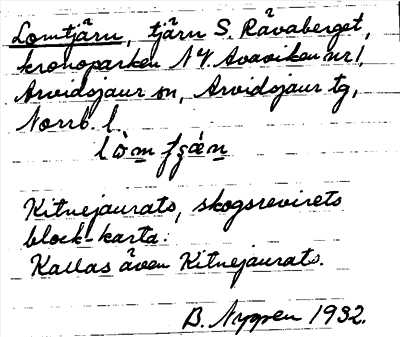 Lomtjärn, tjärn S. Rävaberget,
kronoparken N.V. Avaviken nr 1,
Arvidsjaur sn, Arvidsjaur tg,
Norrb. l.
lòm ʃʒǽn
Kitnejaurats, skogsrevirets
block-karta:
Kallas även Kitnejaurats.
B. Nygren 1932.